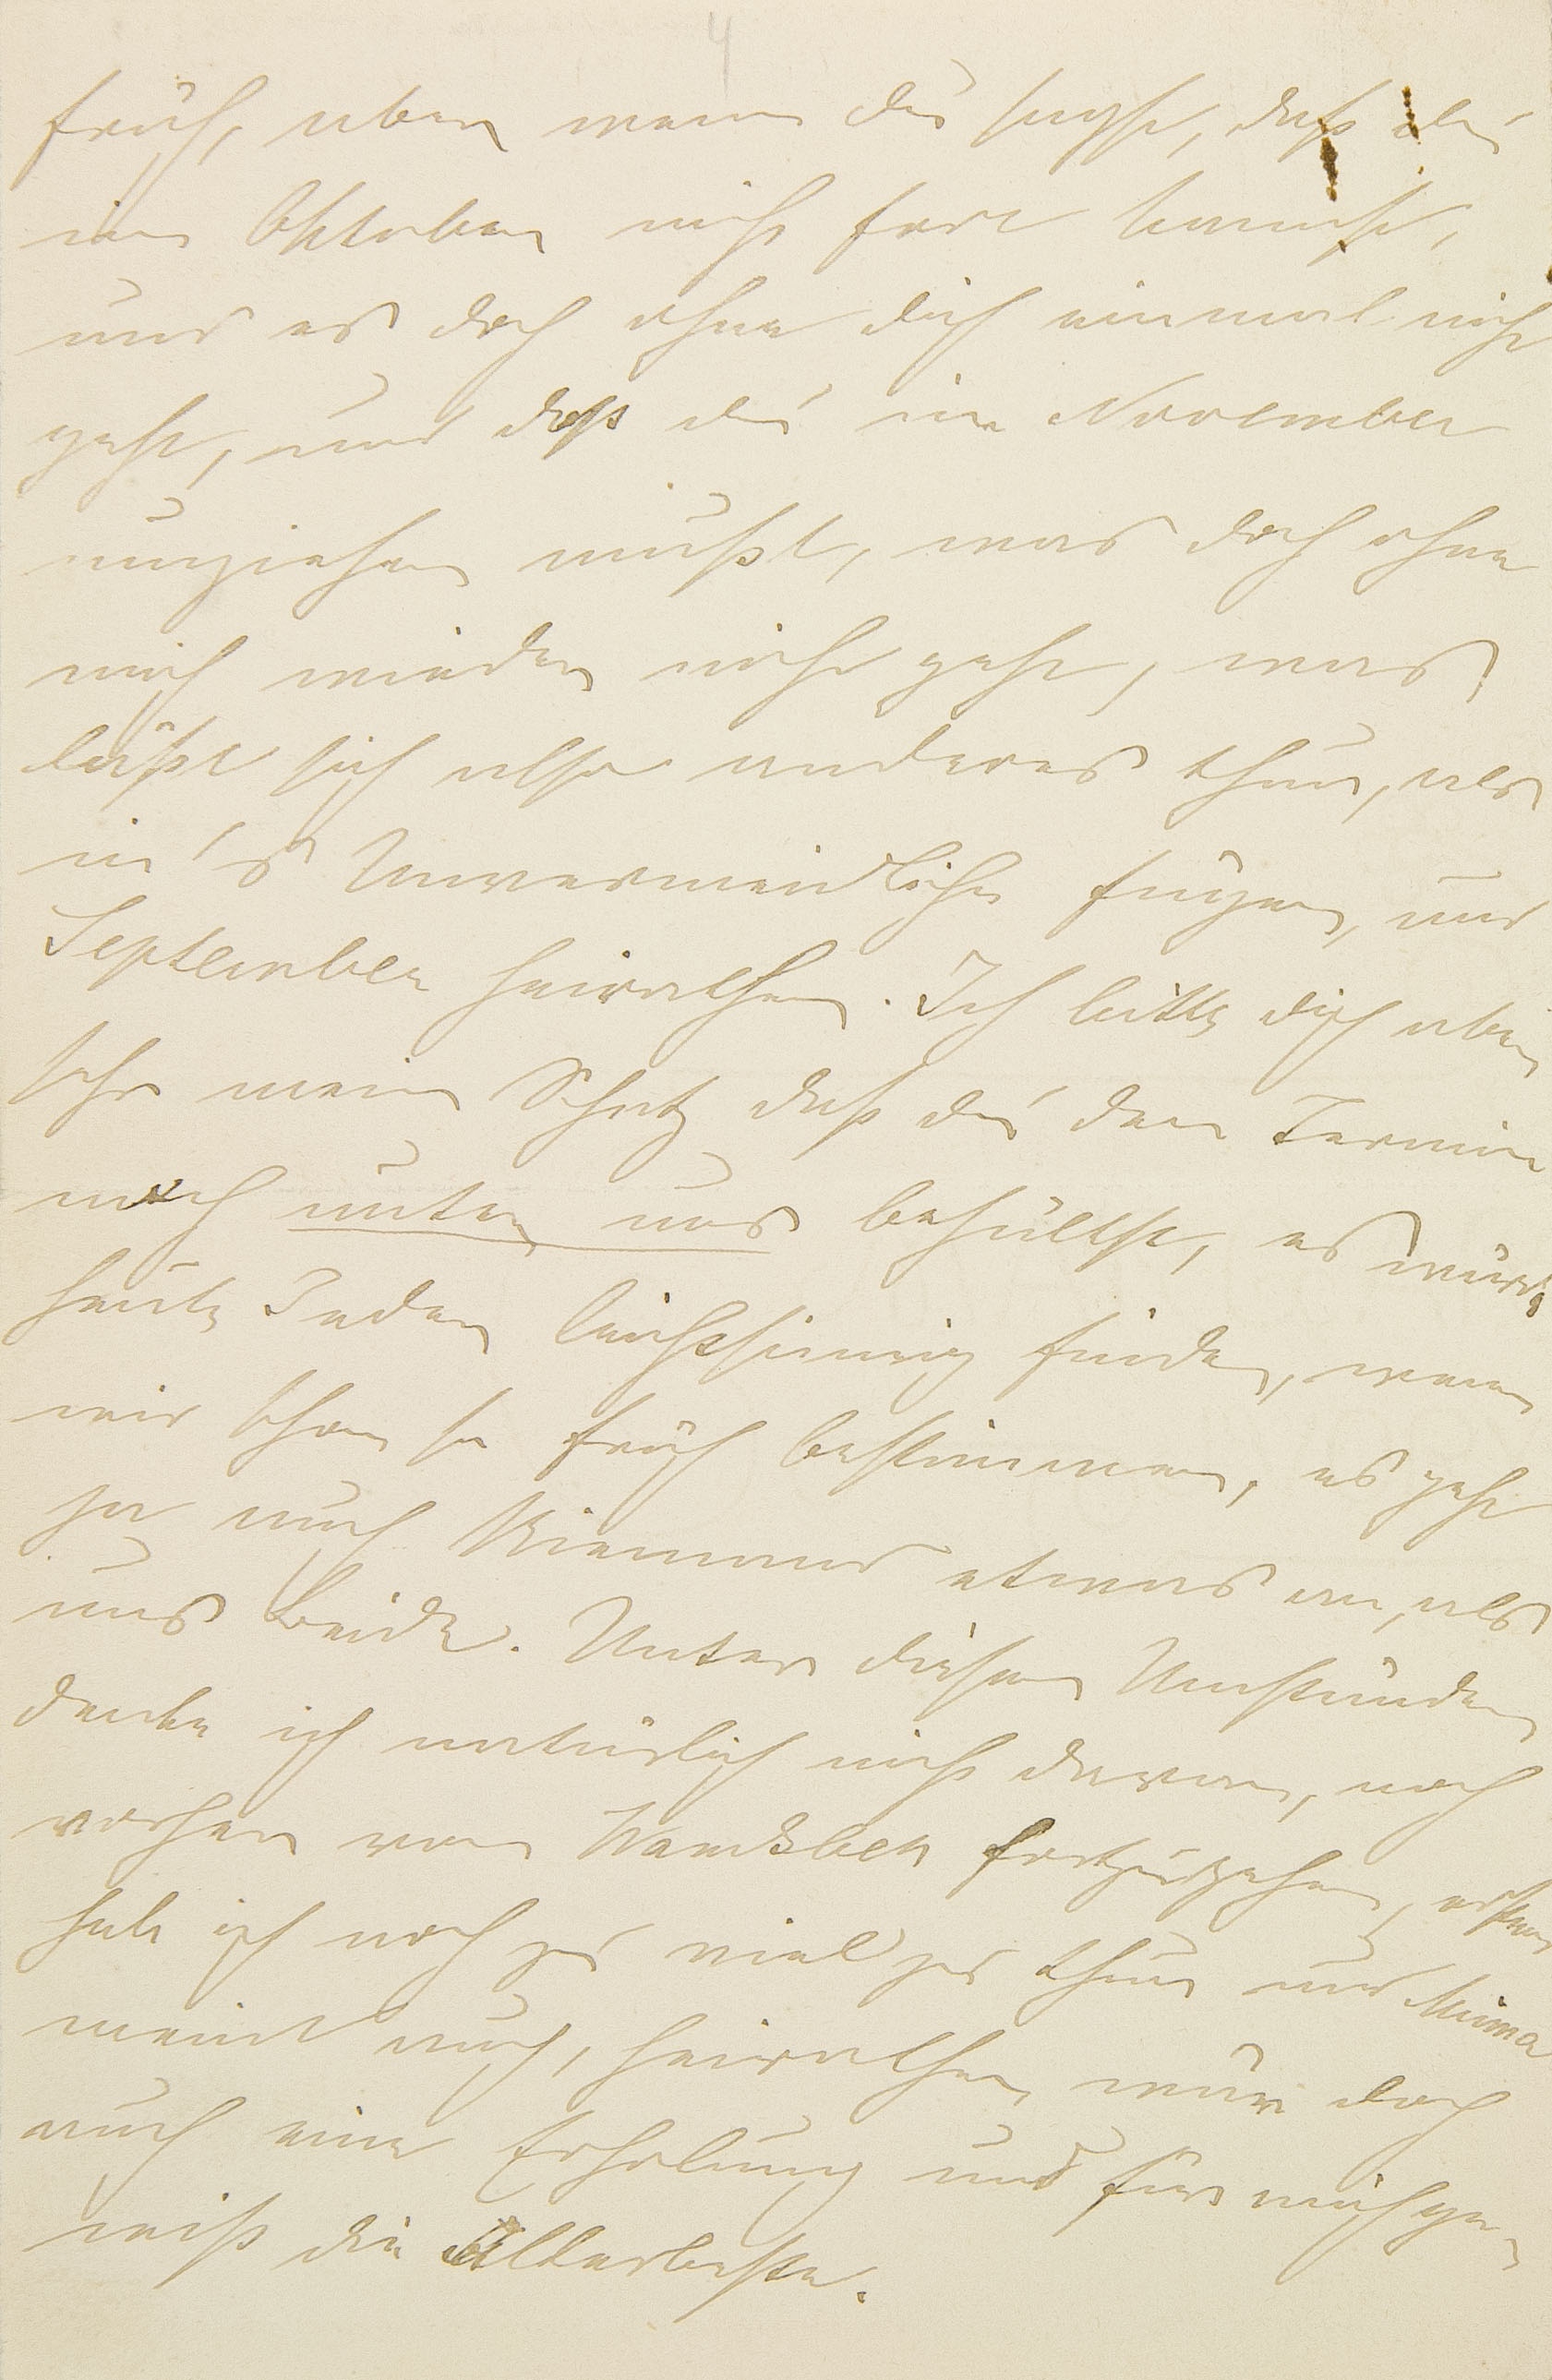 4
früh, aber wenn du sagst, daß du
im Oktober nicht fort kannst,
und es doch ohne dich einmal nicht
geht, und daß du im November
umziehen mußt, was doch ohne
mich wieder nicht geht, was
läßt sich also anderes thun, als
in's Unvermeidliche fügen, und
September heirathen. Ich bitte dich aber
sehr mein Schatz daß du den Termin
noch unter uns behältst, es würde
heute Jeder leichtsinnig finden, wenn
wir schon so früh bestimmen, es geht
ja auch Niemand etwas an, als
uns Beide. Unter diesen Umständen
denke ich natürlich nicht daran, noch
vorher von Wandsbek fortzugehen, erstens
hab ich noch zu viel zu thun und Minna
meint auch, heirathen wär doch
auch eine Erholung und für mich ge-
wiß die Allerbeste.